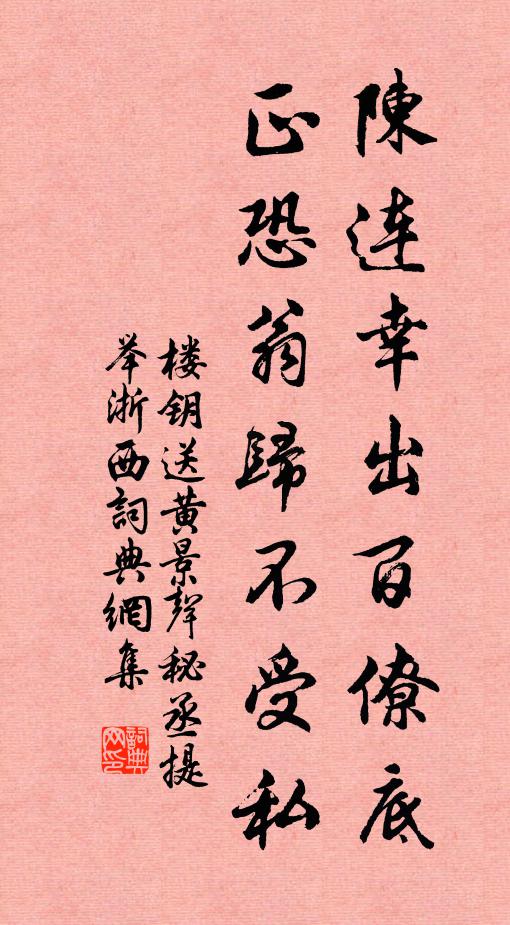 陳連幸出百僚底
正恐翁歸不受私
楼钥送黄景聲秘丞提
举浙西詞典網集
詞典网印